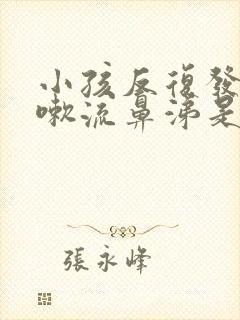 小孩反復發
嗽流鼻涕是
張永峰